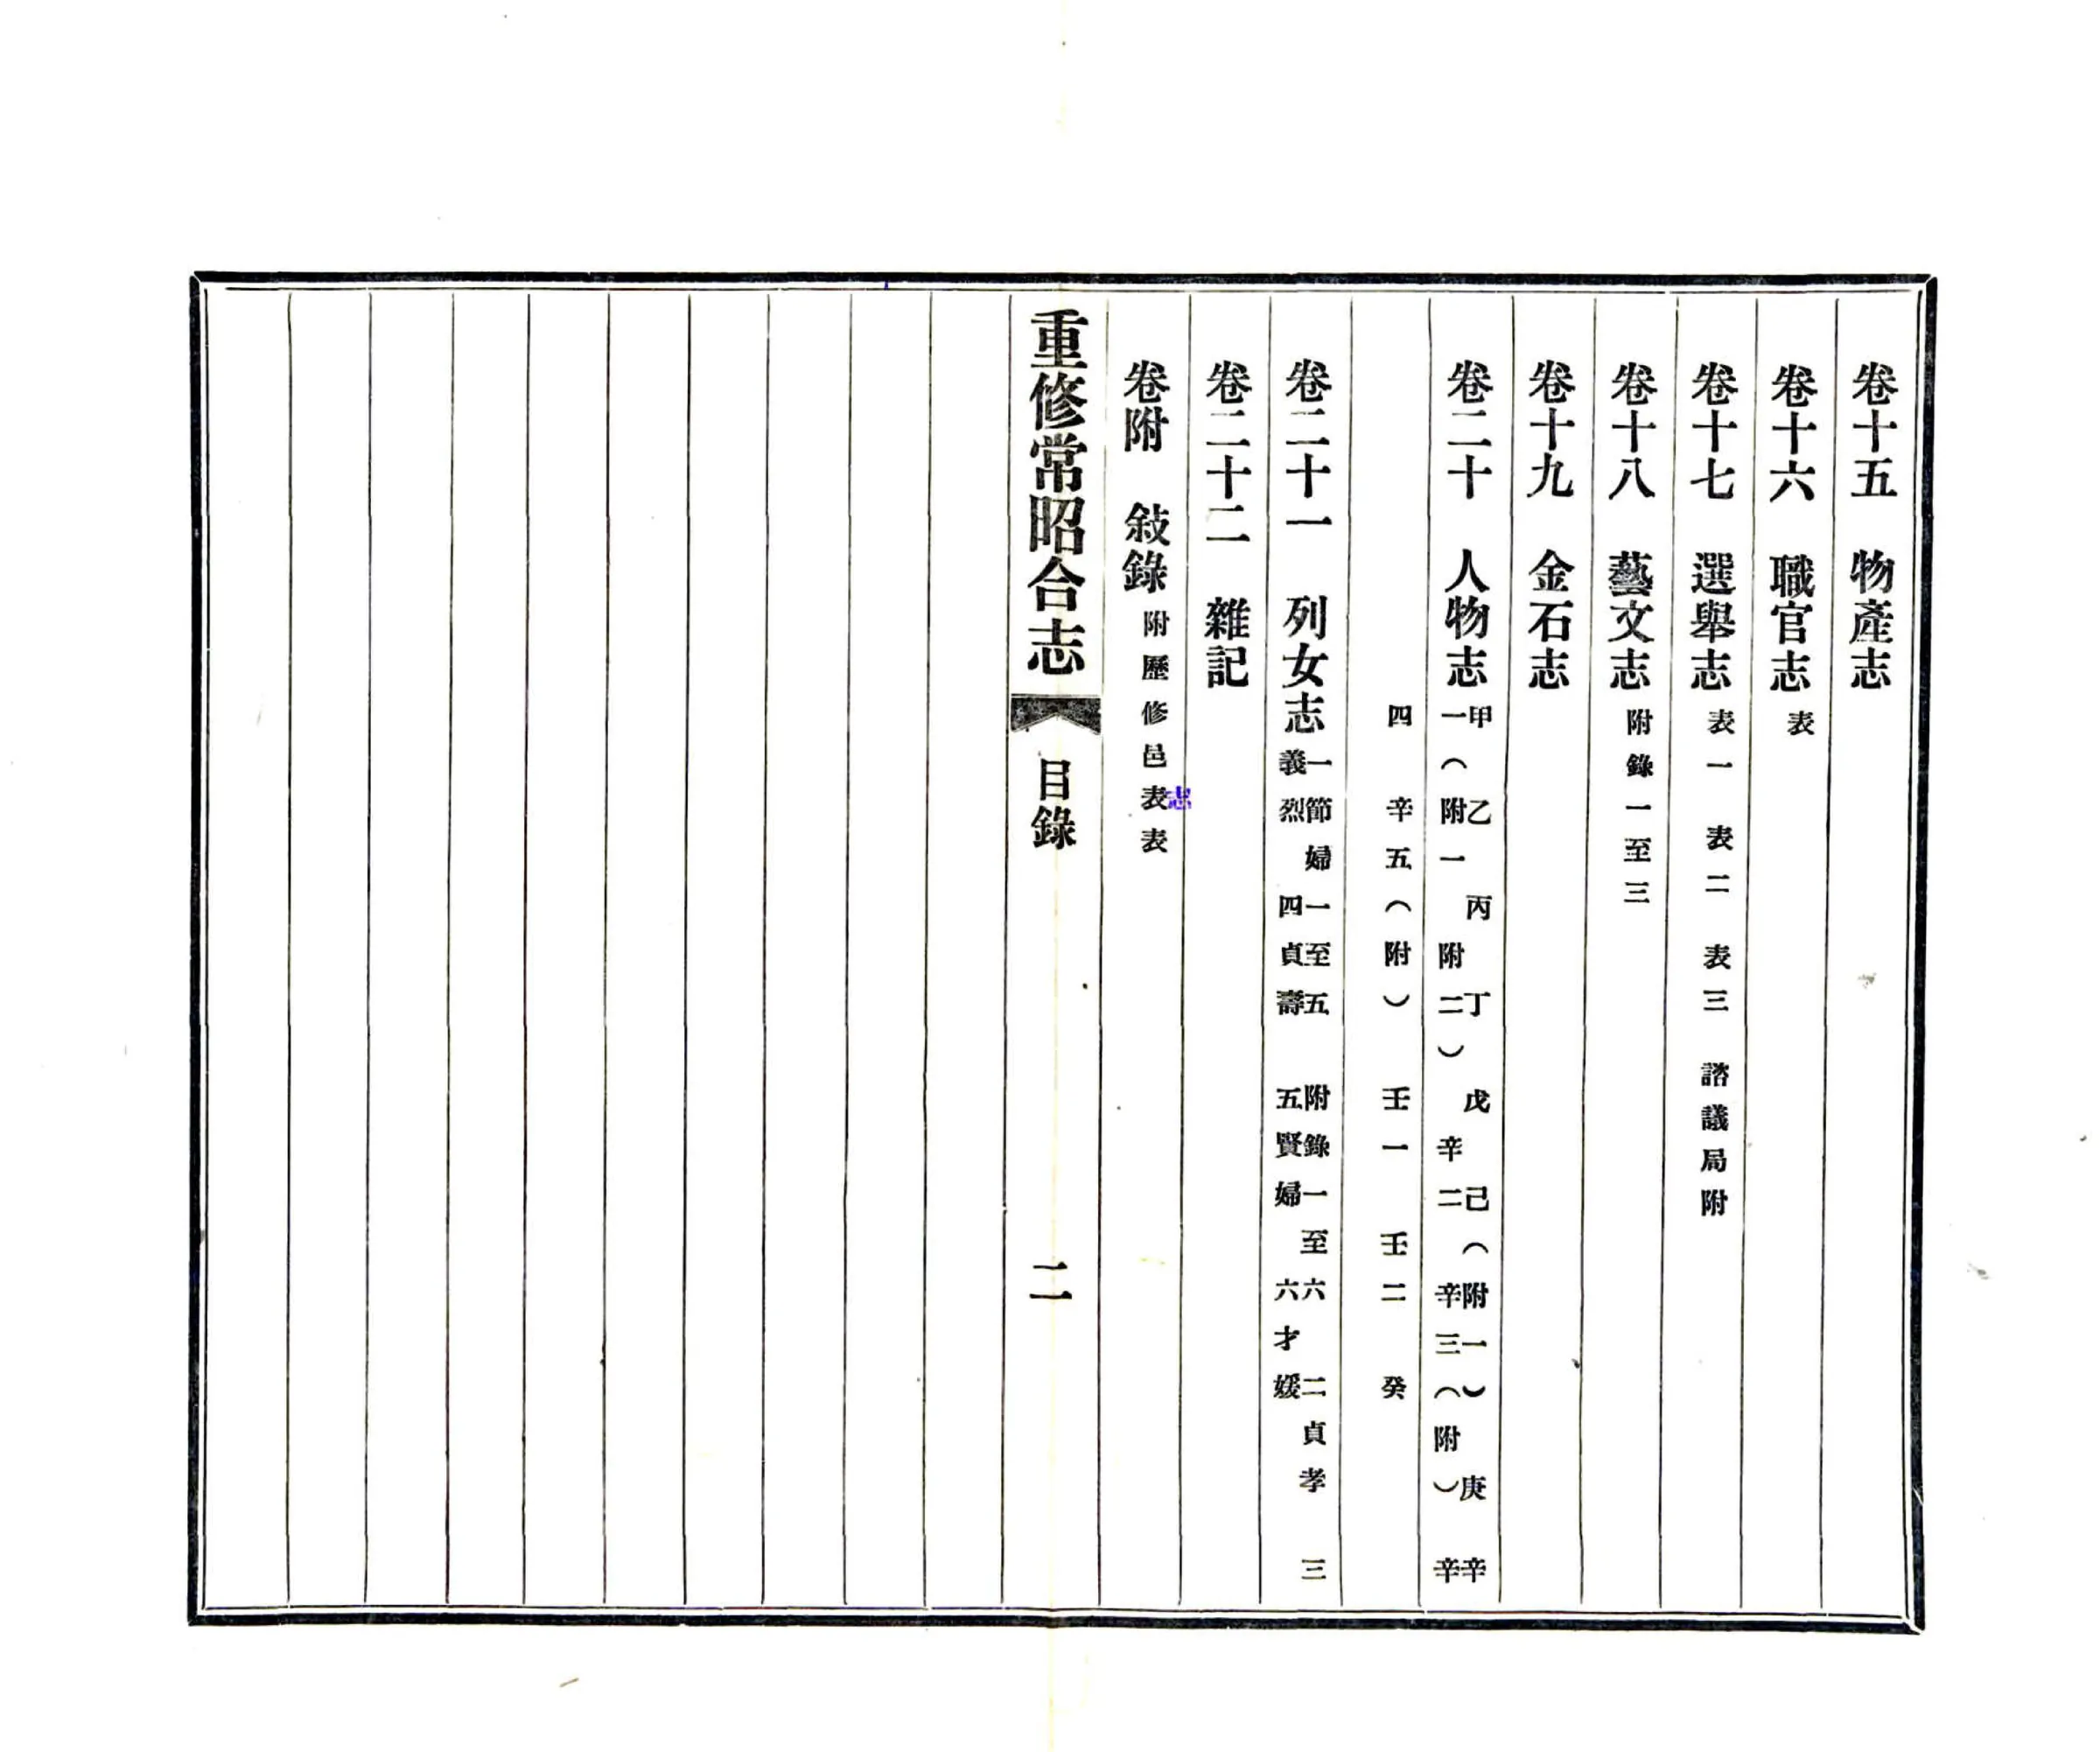 卷十五　物產志
卷十六　職官志　表
卷十七　選舉志　表一　表二　表三　諮議局附
卷十八　藝文志　附錄一至三
卷十九　金石志
卷二十　人物志　甲　乙　丙　丁　戊　己（附一）　庚　辛
一（附一　附二）　辛二　辛三（附）　辛
四　辛五（附）　壬一　壬二　癸
卷二十一　列女志　一節婦一至五　附錄一至六　二貞孝　三
義烈　四貞壽　五賢婦　六才媛
卷二十二　雜記
卷附　敍錄　附歷修邑表表
志
重修常昭合志　目錄　二